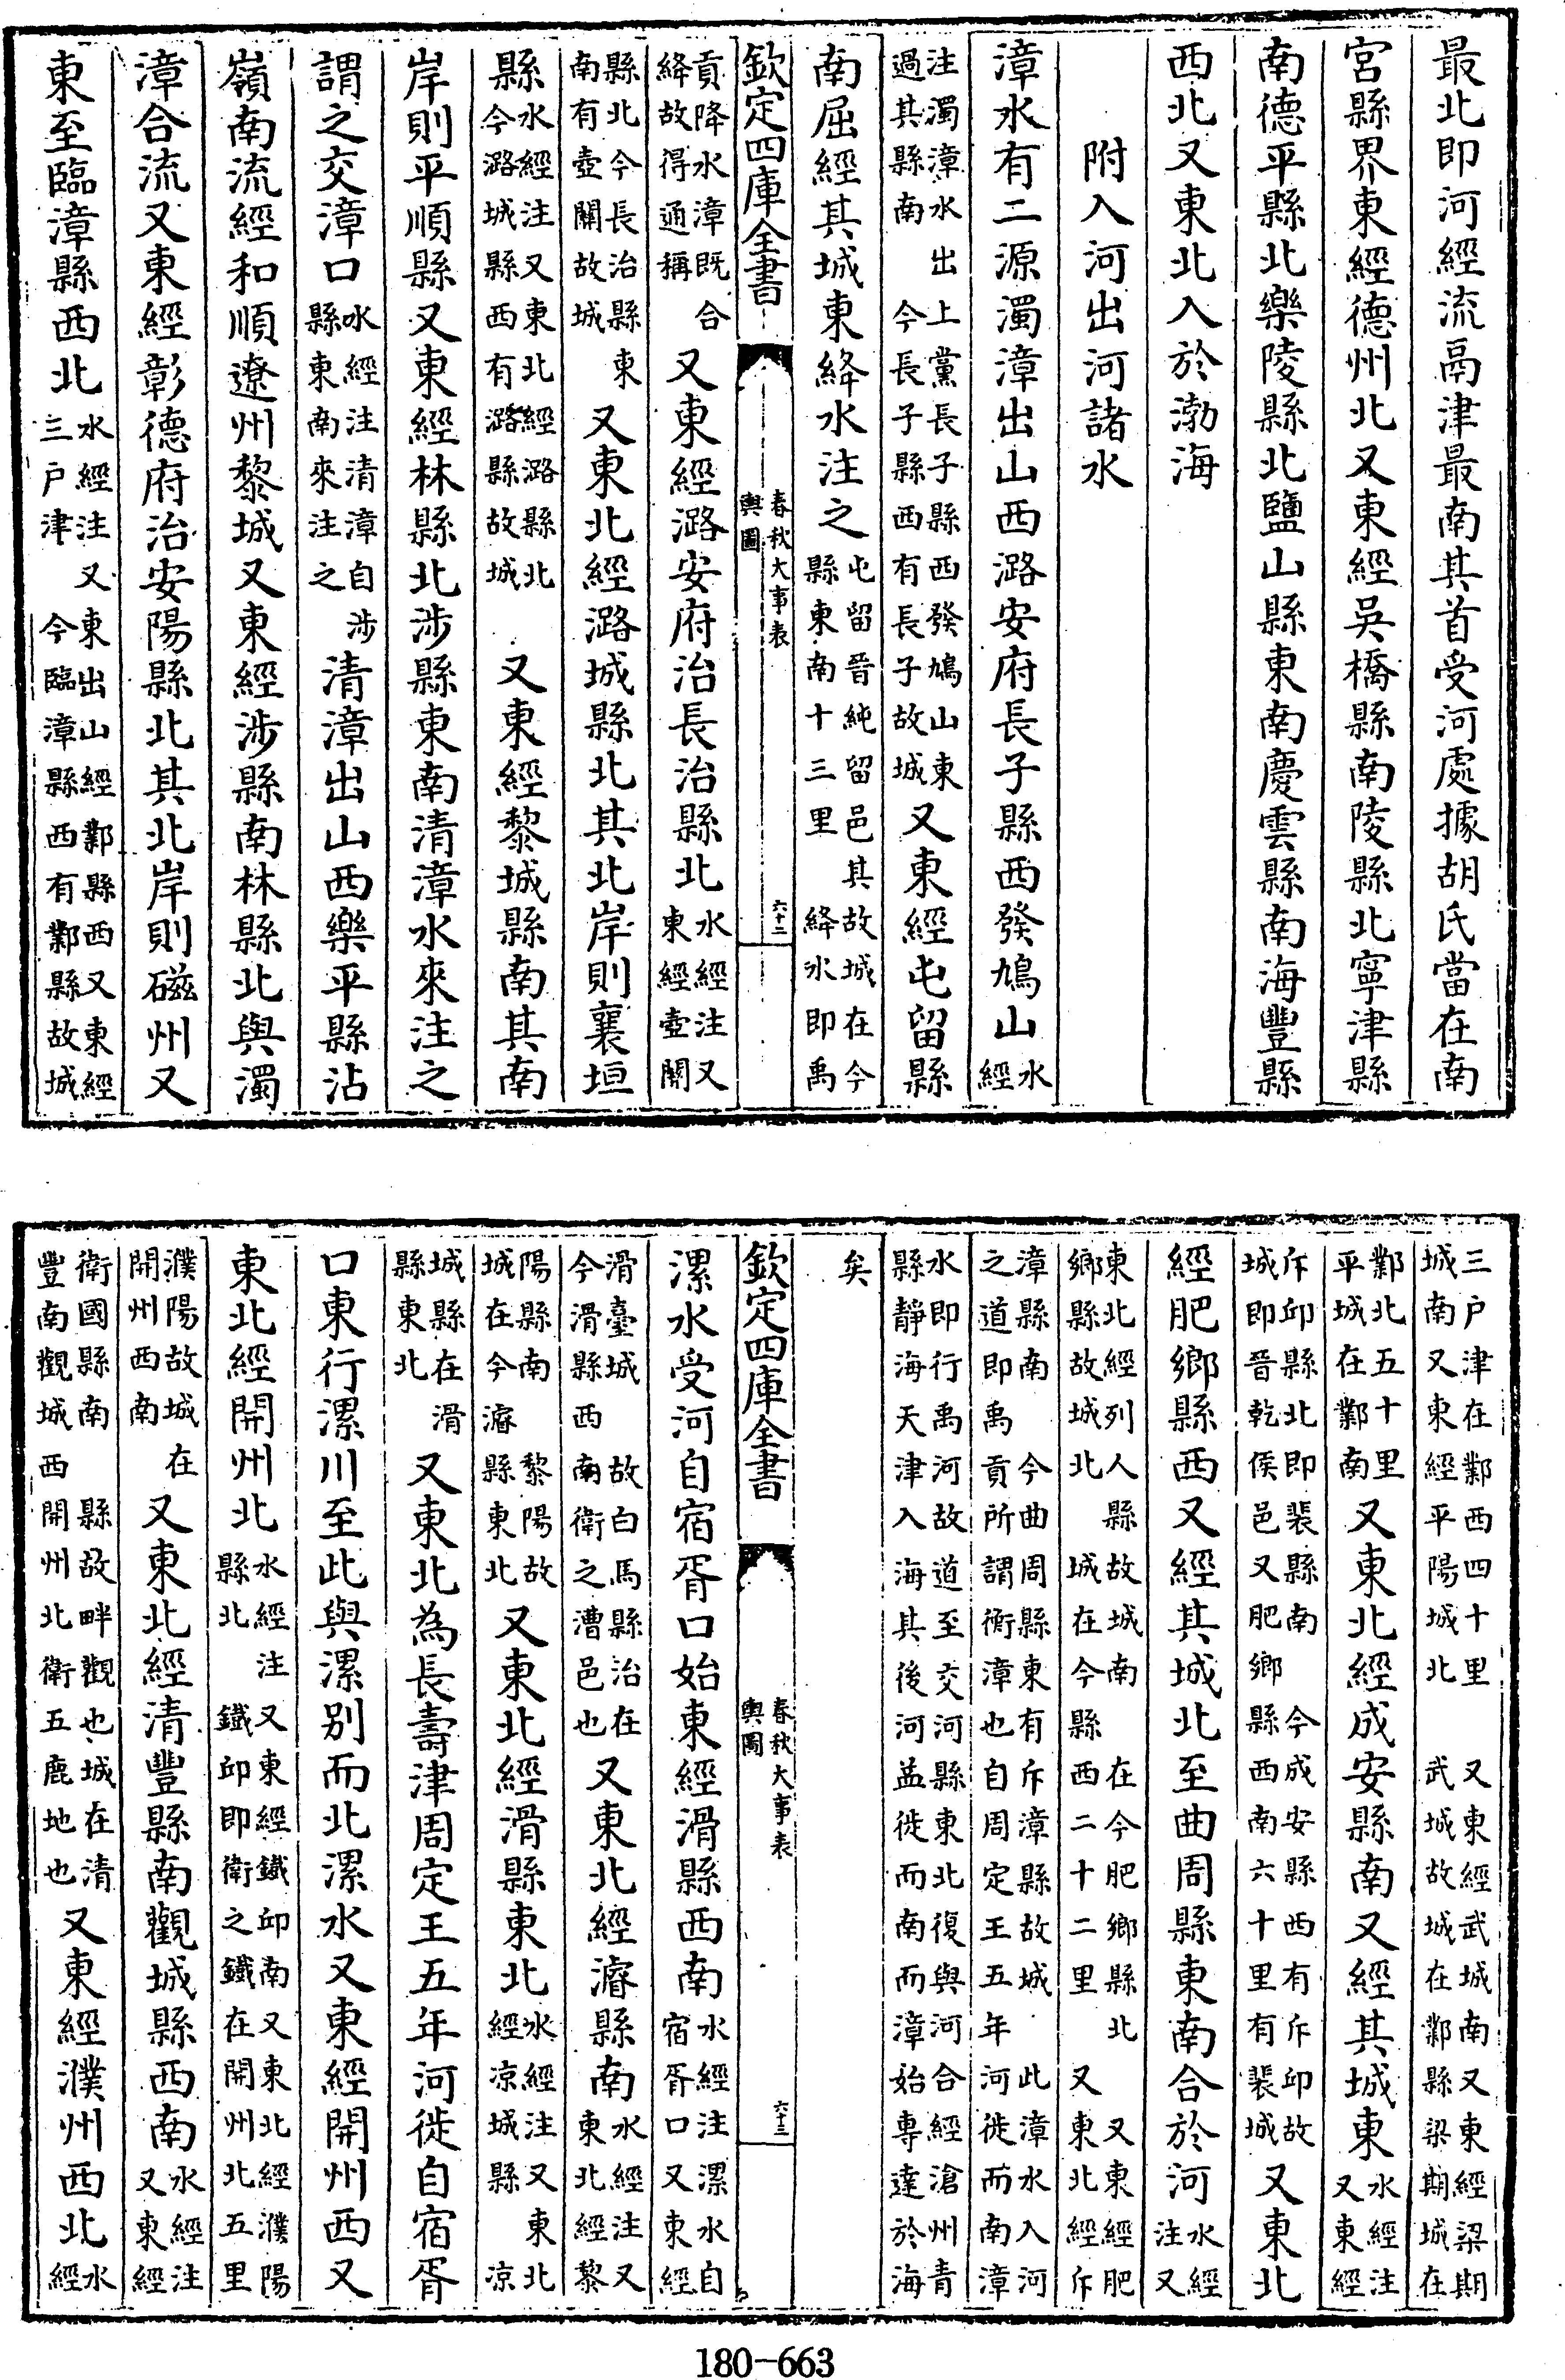 最北即河經流鬲津最南其首受河處據胡氏當在南
宮縣界東經德州北又東經吳橋縣南陵縣北寧津縣
南德平縣北樂陵縣北鹽山縣東南慶雲縣南海豐縣
西北又東北入於渤海
附入河出河諸水
漳水有二源濁漳出山西潞安府長子縣西發鳩山水經
注濁漳水出上黨長子縣西發鳩山東過其縣南今長子縣西有長子故城又東經屯留縣
南屈經其城東絳水注之屯留晉純留邑其故城在今縣東南十三里絳水即禹
欽定四庫全書 春秋大事表 輿圖 六十二
貢降水漳既合絳故得通稱又東經潞安府治長治縣北水經注又東經壺關
縣北今長治縣東南有壺關故城又東北經潞城縣北其北岸則襄垣
縣水經注又東北經潞縣北今潞城縣西有潞縣故城又東經黎城縣南其南
岸則平順縣又東經林縣北涉縣東南清漳水來注之
謂之交漳口水經注清漳自涉縣東南來注之清漳出山西樂平縣沾
嶺南流經和順遼州黎城又東經涉縣南林縣北與濁
漳合流又東經彰德府治安陽縣北其北岸則磁州又
東至臨漳縣西北水經注又東出山經鄴縣西又東經三户津今臨漳縣西有鄴縣故城
三户津在鄴西四十里又東經武城南又東經梁期城南又東經平陽城北武城故城在鄴縣梁期城在
鄴北五十里平城在鄴南又東北經成安縣南又經其城東水經注又東經
斥邱縣北即裴縣南今成安縣西有斥邱故城即晉乾侯邑又肥鄉縣西南六十里有裴城又東北
經肥鄉縣西又經其城北至曲周縣東南合於河水經注又
東北經列人縣故城南在今肥鄉縣北又東經肥鄉縣故城北城在今縣西二十二里又東北經斥
漳縣南今曲周縣東有斥漳縣故城此漳水入河之道即禹貢所謂衡漳也自周定王五年河徙而南漳
水即行禹河故道至交河縣東北復與河合經滄州青縣靜海天津入海其後河益徙而南而漳始專達於海
矣
欽定四庫全書 春秋大事表 輿圖 六十三
漯水受河自宿胥口始東經滑縣西南水經注漯水自宿胥口又東經
滑臺城今滑縣西故白馬縣治在南衛之漕邑也又東北經濬縣南水經注又東北經黎
陽縣南黎陽故城在今濬縣東北又東北經滑縣東北水經注又東北經凉城縣凉
城縣在滑縣東北又東北為長壽津周定王五年河徙自宿胥
口東行漯川至此與漯別而北漯水又東經開州西又
東北經開州北水經注又東經鐵邱南又東北經濮陽縣北鐵邱即衛之鐵在開州北五里
濮陽故城在開州西南又東北經清豐縣南觀城縣西南水經注又東經
衛國縣南縣故畔觀也城在清豐南觀城西開州北衛五鹿地也又東經濮州西北水經
180-663